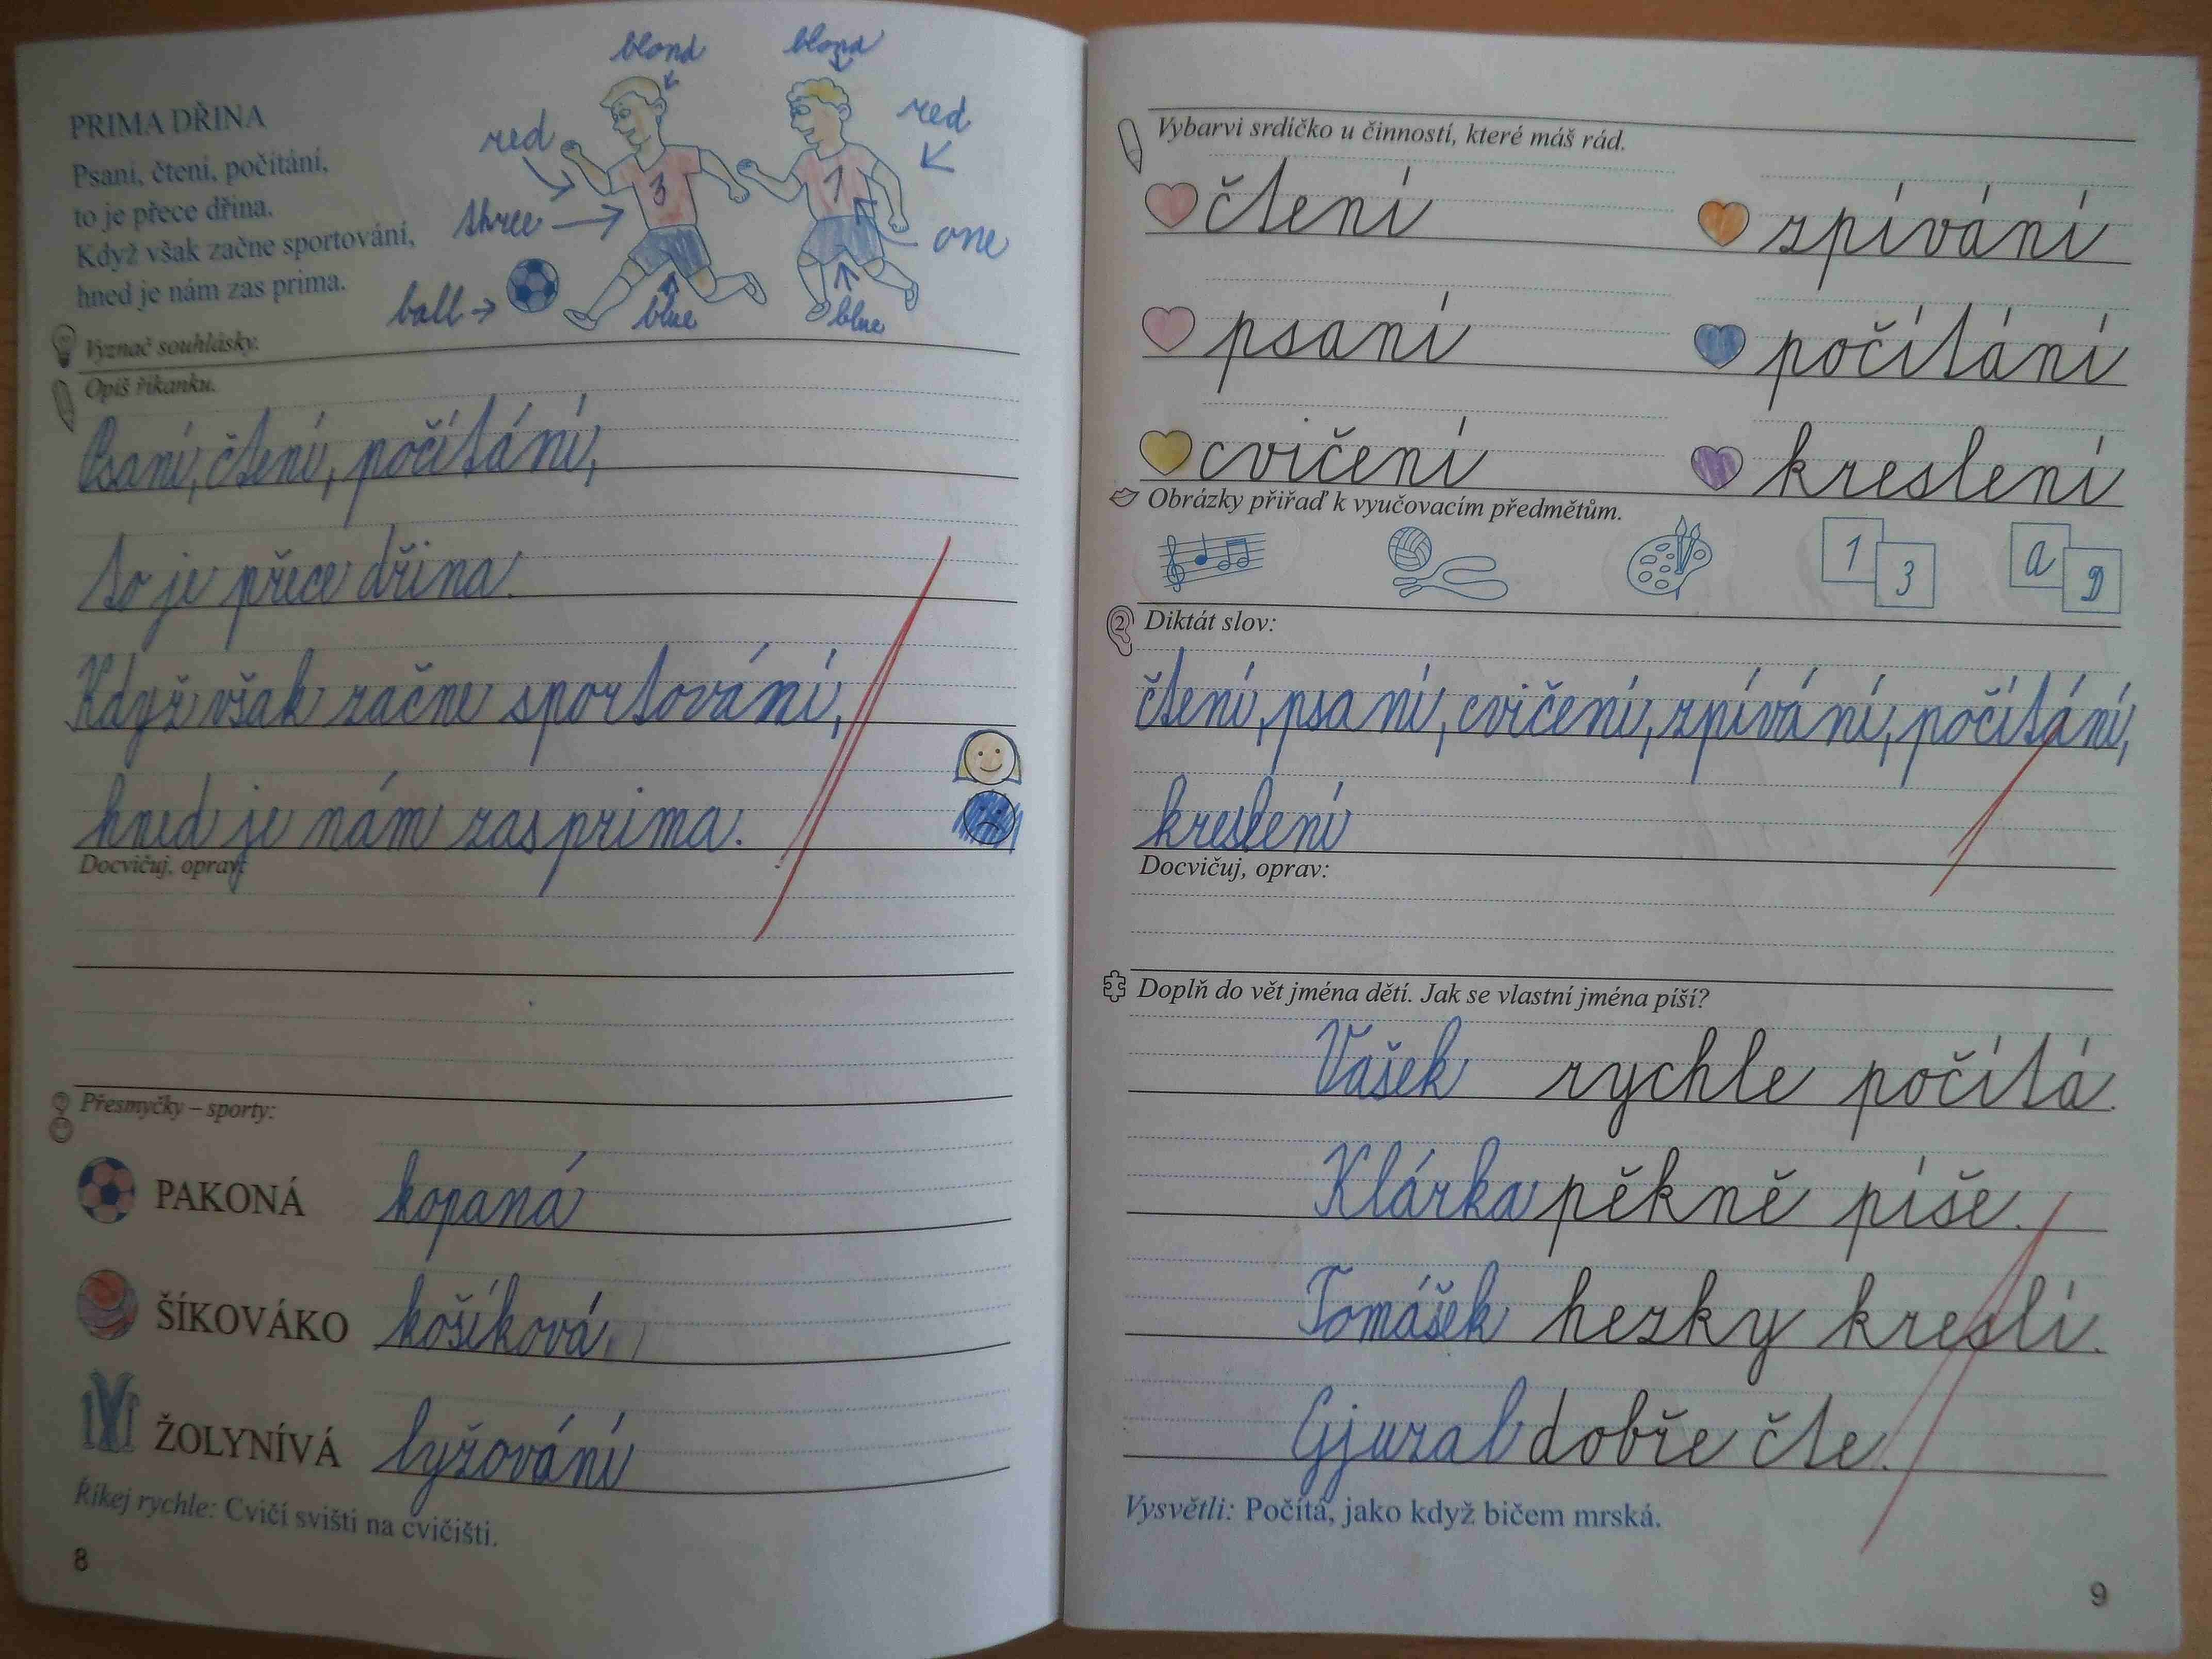 PRIMA DŘINA
Psaní, čtení, počítání,
to je přece dřina.
Když však začne sportování,
hned je nám zas prima.
blond
blond
red
red
3
1
three
one
ball
blue
blue
Vyznač souhlásky.
Opiš říkanku.
Psaní, čtení, počítání,
to je přece dřina.
Když však začne sportování,
hned je nám zas prima.
Docvičuj, oprav:
Přesmyčky – sporty:
PAKONÁ kopaná
ŠÍKOVÁKO košíková
ŽOLYNÍVÁ lyžování
Říkej rychle: Cvičí svišti na cvičišti.
8
Vybarvi srdíčko u činností, které máš rád.
čtení zpívání
psaní počítání
cvičení kreslení
Obrázky přiřaď k vyučovacím předmětům.
1 3 a D
2 Diktát slov:
čtení, psaní, cvičení, zpívání, počítání,
kreslení
Docvičuj, oprav:
Doplň do vět jména dětí. Jak se vlastní jména píší?
Vašek rychle počítá.
Klárka pěkně píše.
Tomášek hezky kreslí.
dobře čte.
Vysvětli: Počítá, jako když bičem mrská.
9